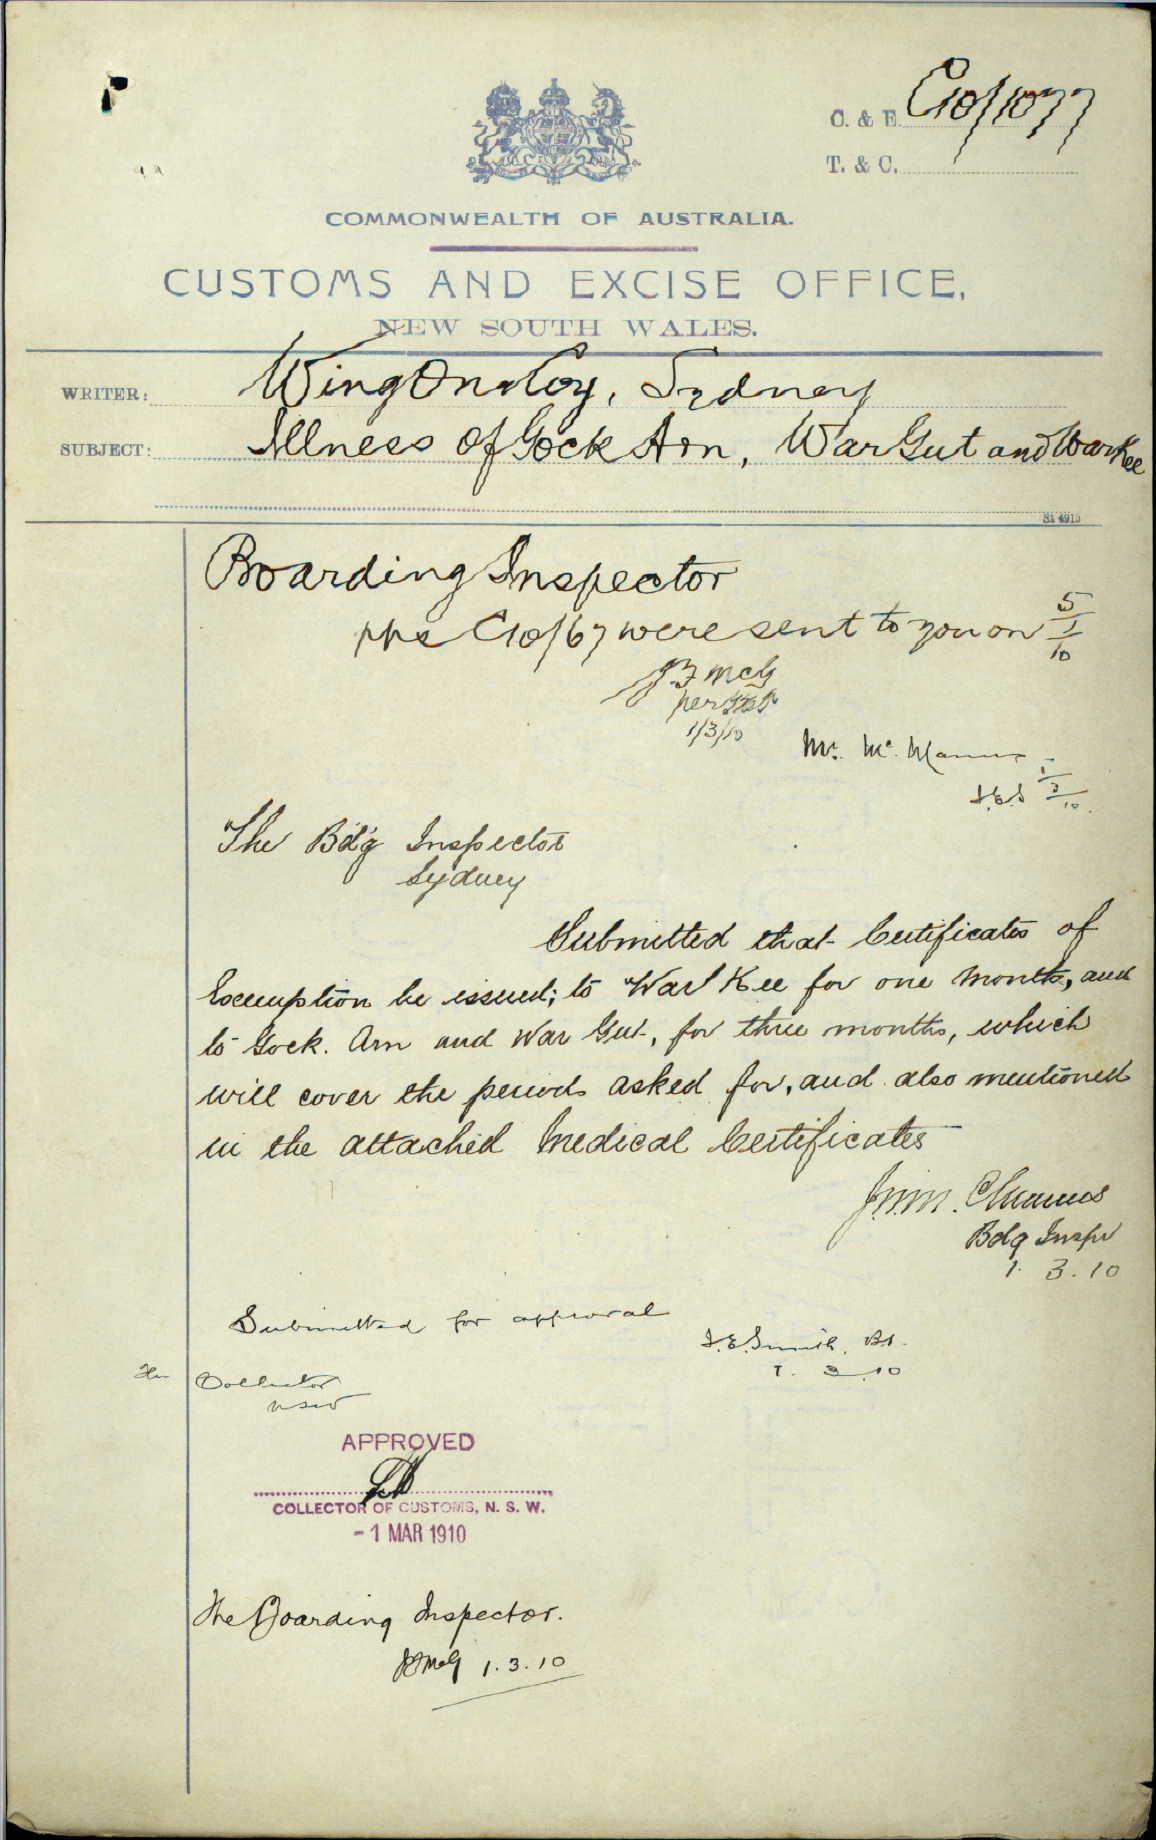 C. & E. C10/1077
T. & C.
COMMONWEALTH OF AUSTRALIA.
CUSTOMS AND EXCISE OFFICE,
NEW SOUTH WALES.
WRITER: Wing On & Coy, Sydney
SUBJECT: Illness of Gock Arn, War Gut and War Kee
St 4915
Boarding Inspector
pps C10/67 were sent to you on 5/1/10
JF McG
per
1/3/10
Mr. McManus
J.E.S 1/3/10.
The Bd'g Inspector
Sydney
Submitted that Certificates of
Exemption be issued; to War Kee for one month, and
to Gock. Arn and War Gut, for three months, which
will cover the periods asked for, and also mentioned
in the attached Medical Certificates
Bdg Inspr
1. 3. 10
Submitted for approval
J.E. Smith. B.I.
1. 3. 10
The Collector
NSW
APPROVED
COLLECTOR OF CUSTOMS, N. S. W.
- 1 MAR 1910
The Boarding Inspector.
JFMcG 1. 3. 10